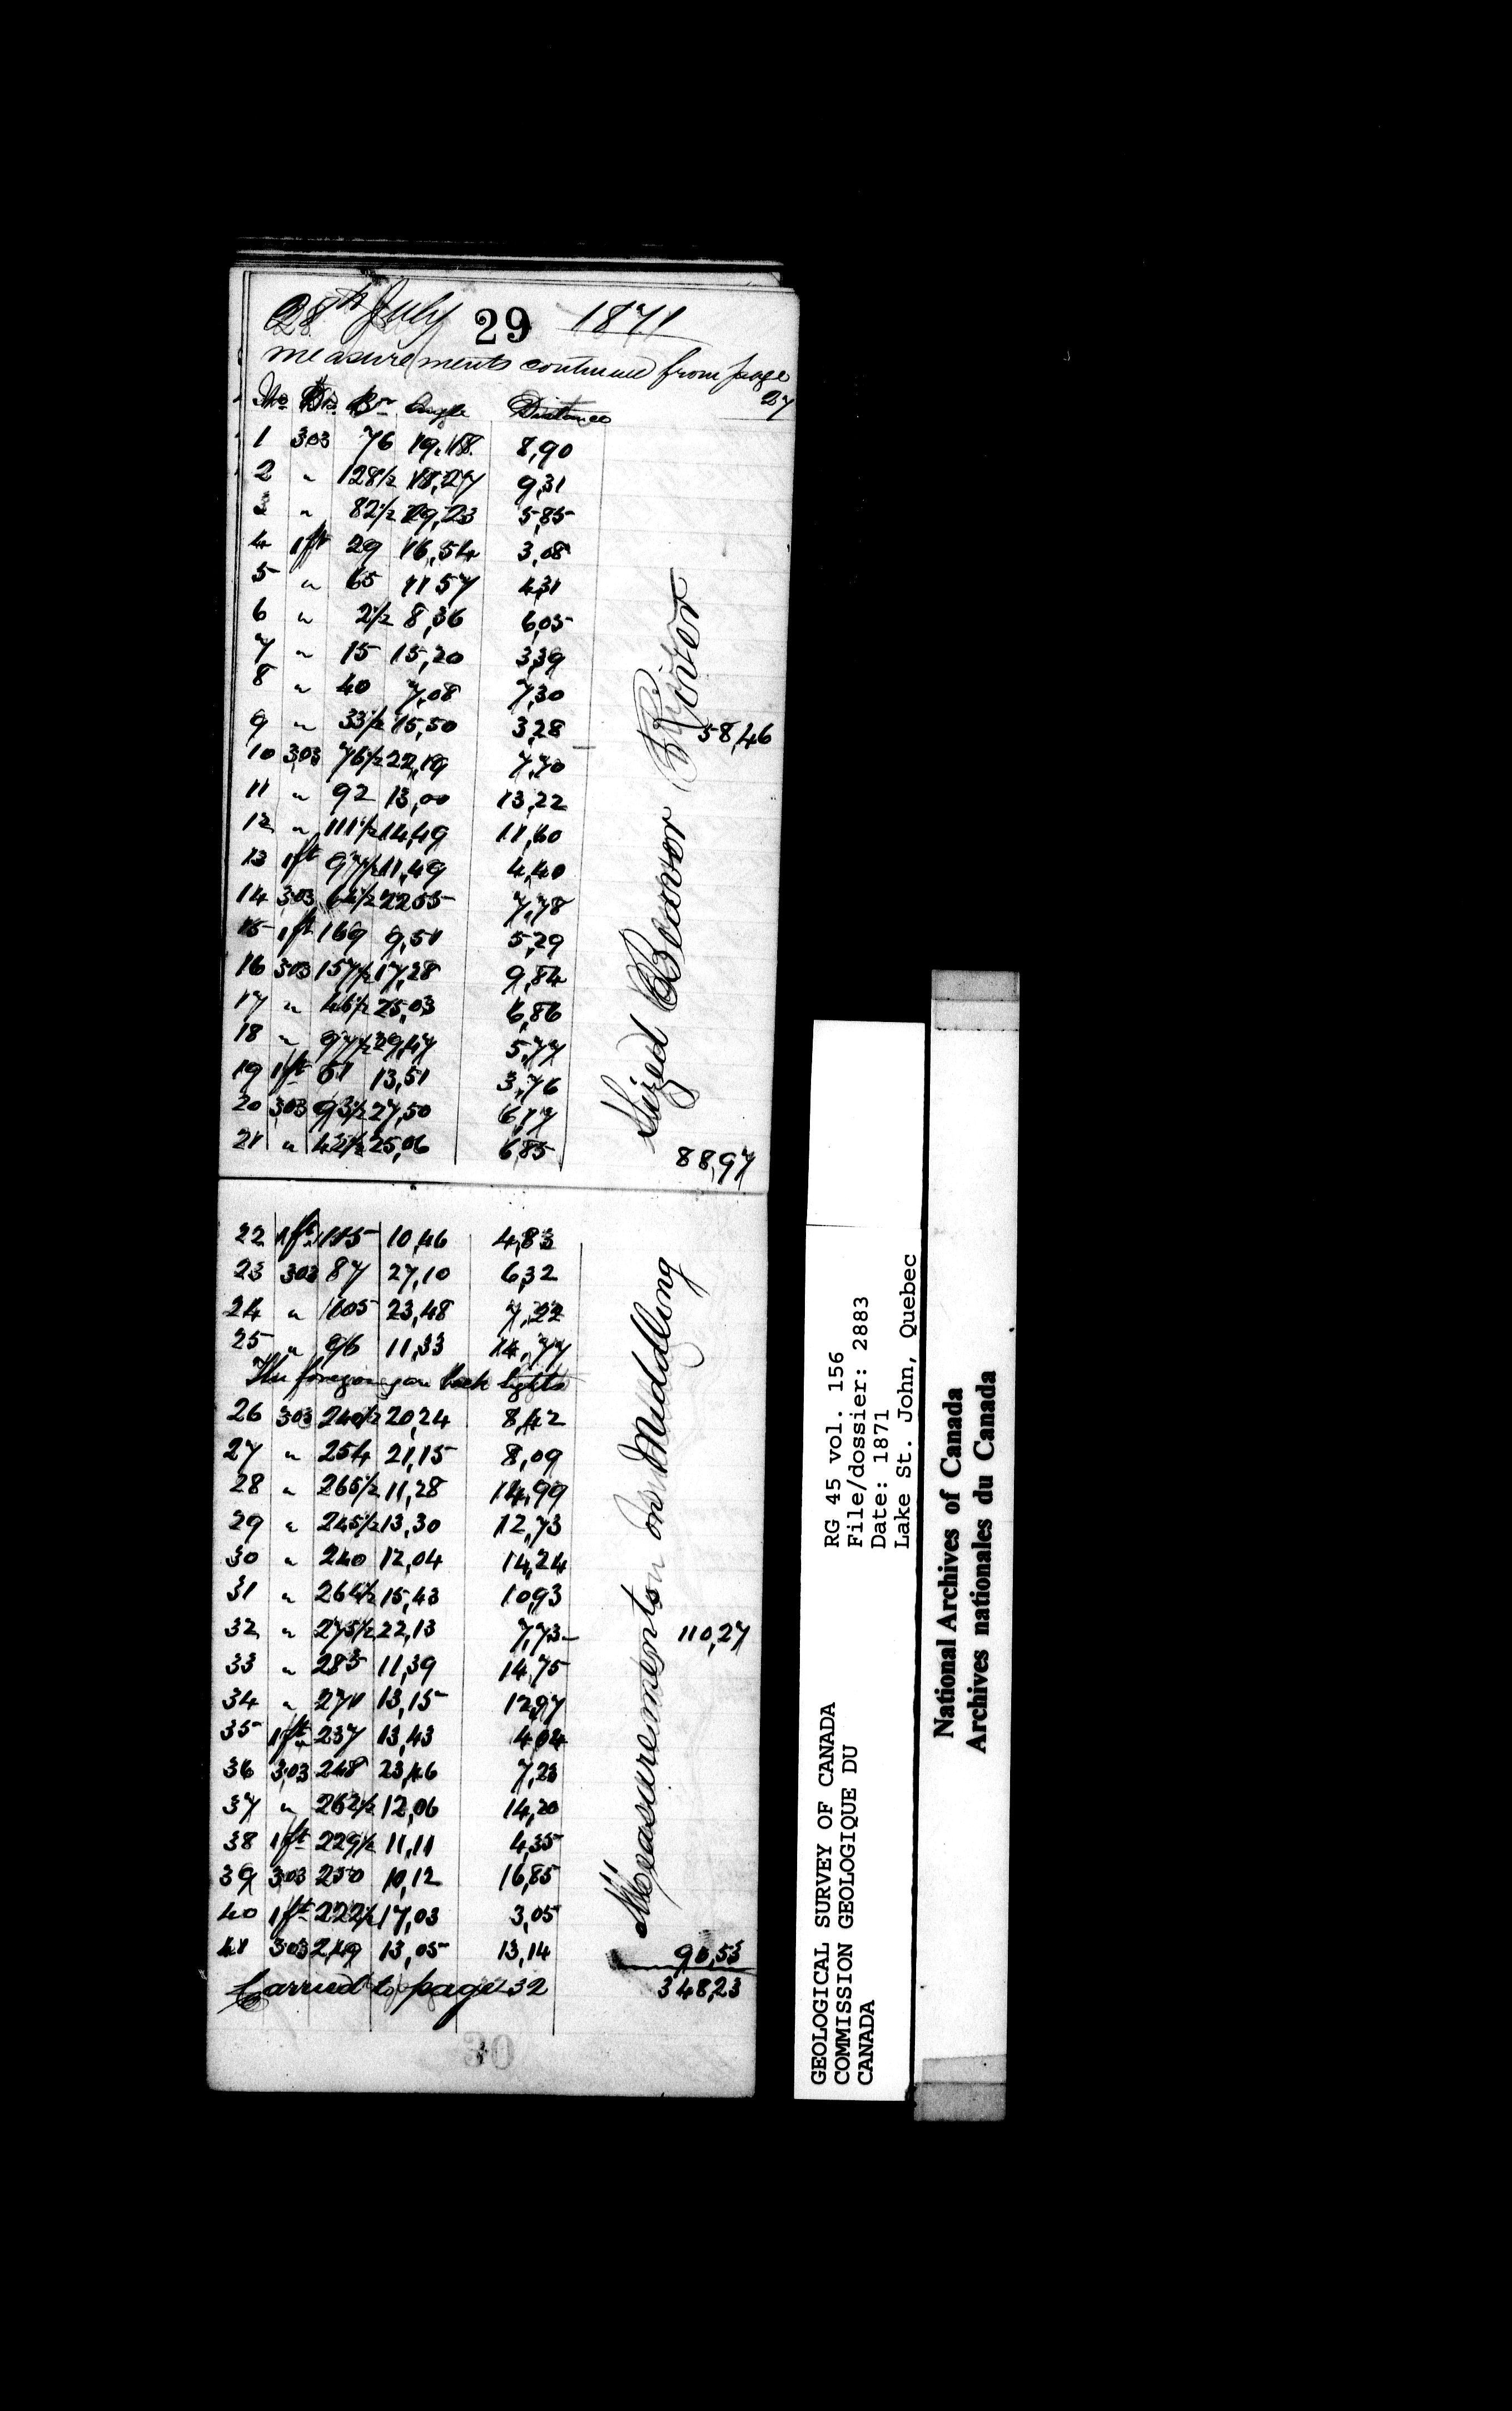 28th July 29 1871
measurements continued from page
27
No Dis. Br Angle Distance
1 303 76 19.18. 8,90
2 " 128½ 18,27 9,31
3 " 82½ 29,23 5,85
4 1ft 29 16,54 3,08
5 " 65 11 57 4,31
6 " 2½ 8,36 6,05
7 " 15 15,20 3,39
8 " 40 7,08 7,30
9 " 33½ 15,50 3,28 58,46
10 303 76½ 22,19 7,70
11 " 92 13,00 13,22
12 " 111½ 14,49 11,60
13 1ft 97½ 11,49 4,40
14 303 64½ 22 05 7,78
15 1ft 169 9,51 5,29
16 303 157½ 17,28 9,84
17 " 46½ 25,03 6,86
18 " 97½ 29,47 5,77
19 1ft 61 13,51 3,76
20 303 93½ 27,50 6,17
21 " 42½ 25,06 6,85 88,97
Sized Beaver River
22 1ft 115 10,46 4,83
23 303 87 27,10 6,32
24 " 105 23,48 7,22
25 " 96 11,33 14,77
The foregoing are back sights
26 303 240½ 20,24 8,42
27 " 254 21,15 8,09
28 " 265½ 11,28 14,99
29 " 245½ 13,30 12,73
30 " 240 12,04 14,24
31 " 264½ 15,43 10,93
32 " 275½ 22,13 7,73 110,27
33 " 283 11,39 14,75
34 " 271 13,15 12,97
35 1ft 237 13,43 4,04
36 303 248 23,46 7,23
37 " 262½ 12,06 14,20
38 1ft 229½ 11,11 4,35
39 303 250 10,12 16,85
40 1ft 222½ 17,03 3,05
41 303 249 13,05 13,14 90,53
Carried to page 32 348,23
Measurements on Middling
30
GEOLOGICAL SURVEY OF CANADA
COMMISSION GEOLOGIQUE DU
CANADA
RG 45 vol. 156
File/dossier: 2883
Date: 1871
Lake St. John, Quebec
National Archives of Canada
Archives nationales du Canada